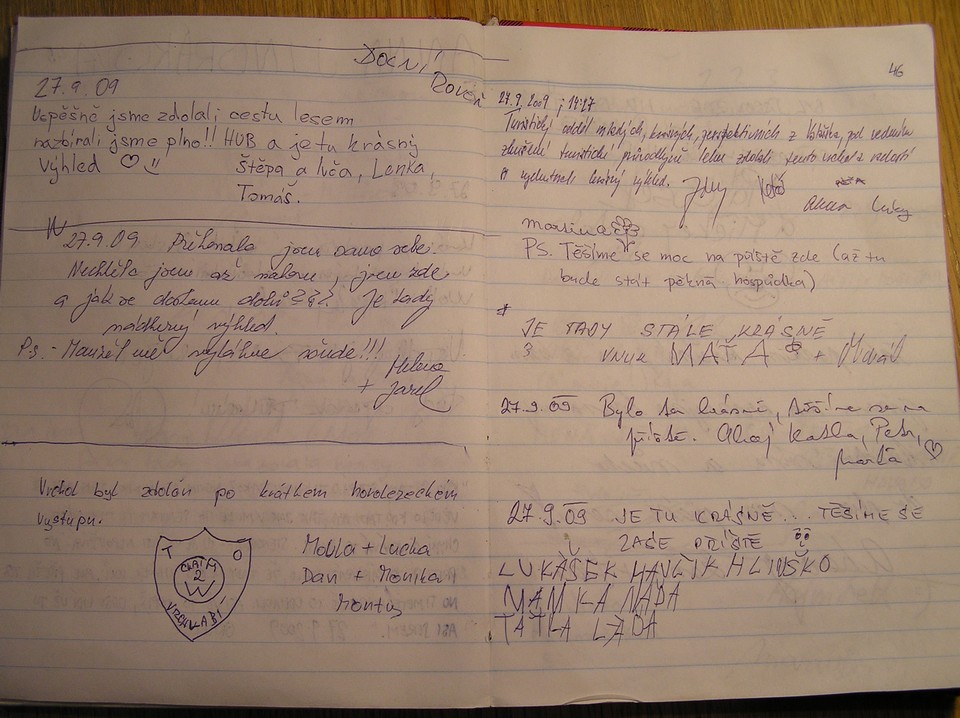 Dolní
Roveň
27.9.09
Úspěšně jsme zdolali cestu lesem
nazbírali jsme plno!! HUB a je tu krásný
Výhled
Štěpa a Luča, Lenka,
Tomáš.
27.9.09. Překonala jsem samo sebe.
Nechtěla jsem až nahoru, jsem zde
a jak se dostanu dolů???! Je tady
nádherný výhled.
P.s. - Manžel mě vytáhne všude!!!
Helena
+ Karel
Vrchol byl zdolán po krátkém horolezeckém
výstupu.
T O
CLAIM
2
W
VRCHLABÍ
+ Lucka
Dan + Monika
46
27.9.2009 ; 14:27
Turistický oddíl mladých, krásných, perspektivních z pod vedením
zkušené turistické průvodkyně tento vrchol s radostí
a vychutnali krásný výhled.
Anna
martina
PS. Těšíme se moc na příště zde (až tu
bude stát pěkná hospůdka)
JE TADY STÁLE KRÁSNĚ
VNUK MÁŤA +
27.9.09 Bylo tu krásně, těšíme se na
příště. Ahoj Katka, Petr,
27.9.09 JE TU KRÁSNĚ... TĚŠÍME SE
ZASE PŘÍŠTĚ
LUKÁŠEK HAVLÍK HLINSKO
MAMKA NAĎA
TAŤKA LÁĎA